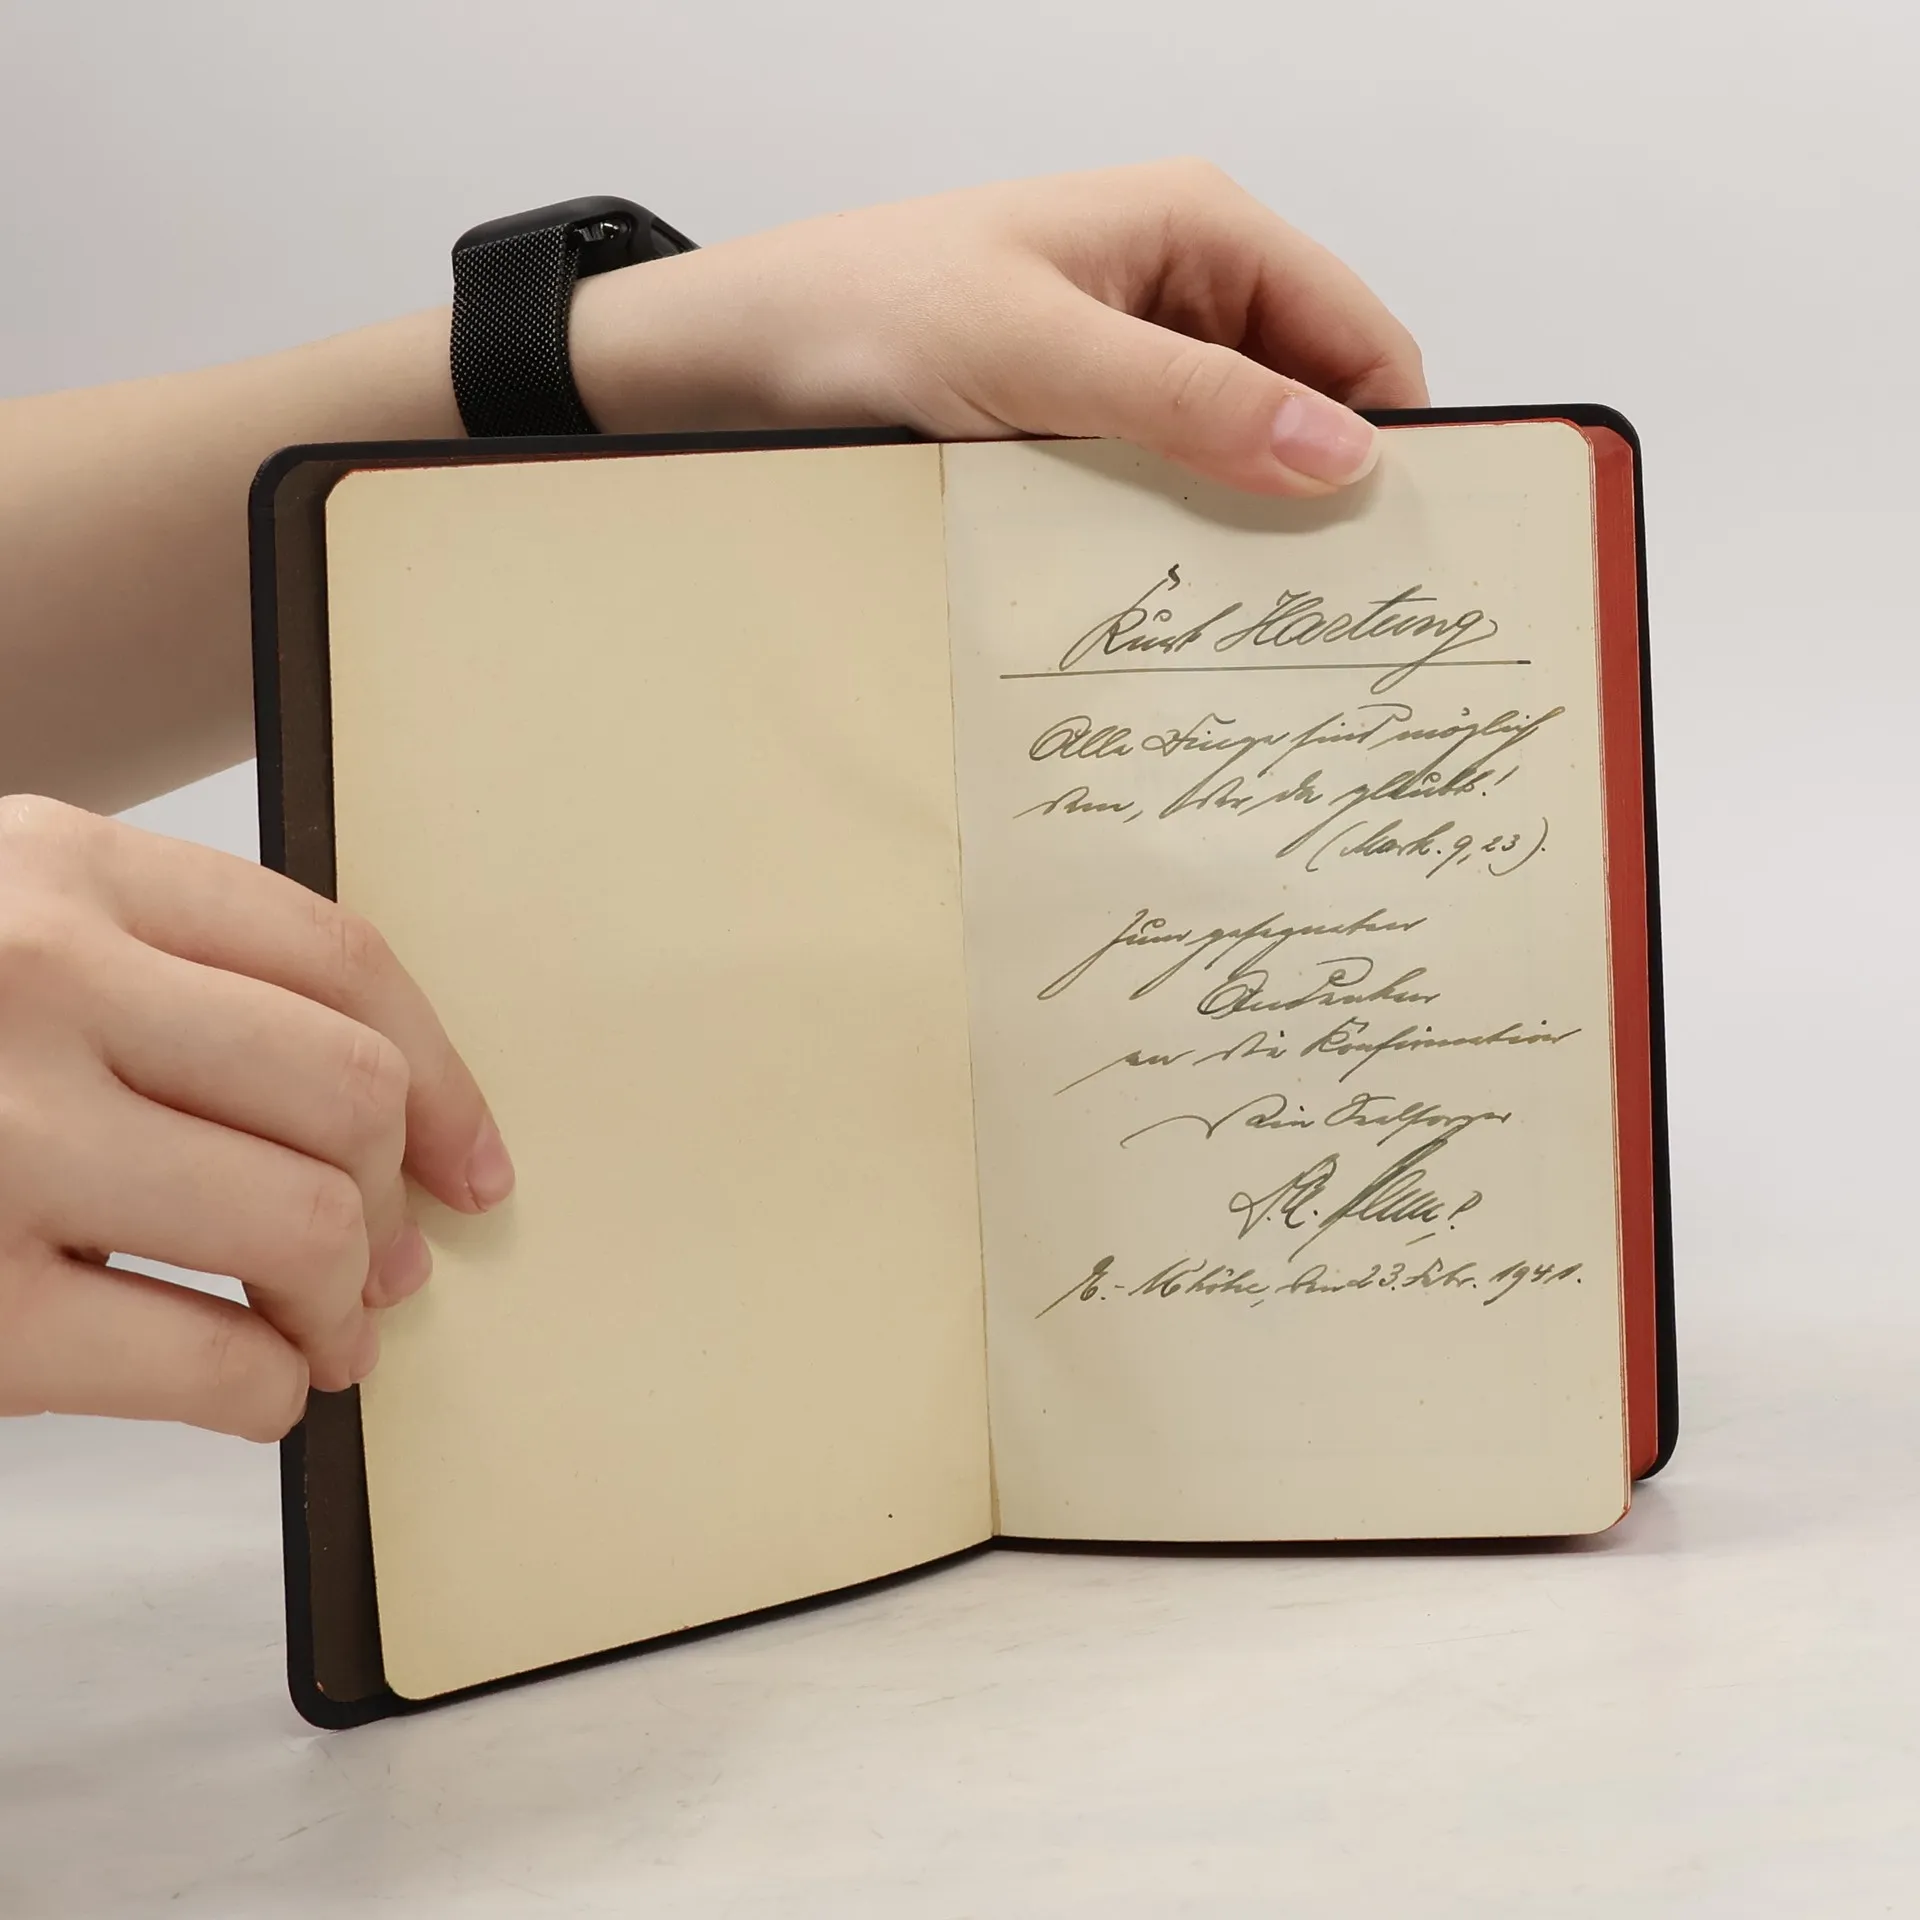 Kurt Hartung
Alle Dinge sind möglich
dem, der da glaubt!
(Mark. 9, 23).
Zum gesegneten
Andenken
an die Konfirmation
Dein Seelsorger
den 23. Febr. 1941.